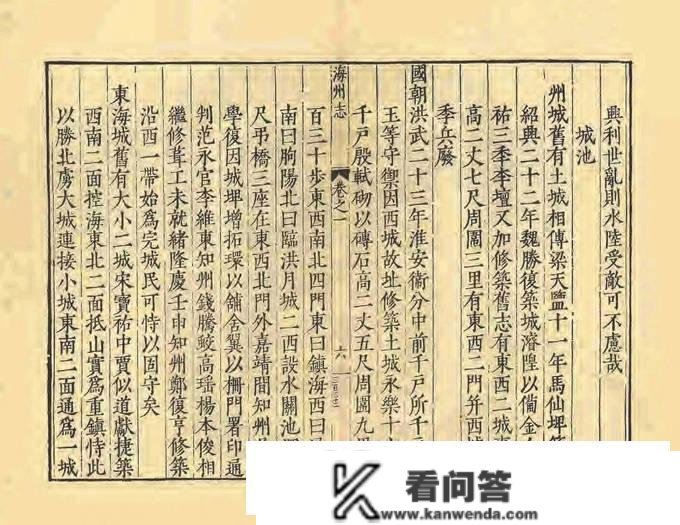 興利世亂則水陸受敵可不慮哉
城池
州城舊有土城相傳梁天監十一年馬仙埤築
紹興二十二年魏勝復築城濬隍以備金
祐三季李壇又加修築舊志有東西二城
高二丈七尺周圍三里有東西二門并西城
季兵廢
國朝洪武二十三年淮安衞分中前千戶所千
玉等守禦因西城故址修築土城永樂十
千戶殷軾砌以磚石高二丈五尺周圍九里
海州志 卷之二 六
百三十步東西南北四門東曰鎮海西曰
南曰朐陽北曰臨洪月城二西設水關池
尺弔橋三座在東西北門外嘉靖間知州
學復因城埤增拓環以舖舍翼以柵門署印通
判范永官李維東知州錢騰蛟高瑶楊本俊相
繼修葺工未就緒隆慶壬申知州鄭復亨修築
沿西一帶始爲完城民可恃以固守矣
東海城舊有大小二城宋寶祐中賈似道獻捷築
西南二面控海東北二面抵山實爲重鎮恃此
以勝北虜大城連接小城東南二面通爲一城
看问答
www.kanwenda.com